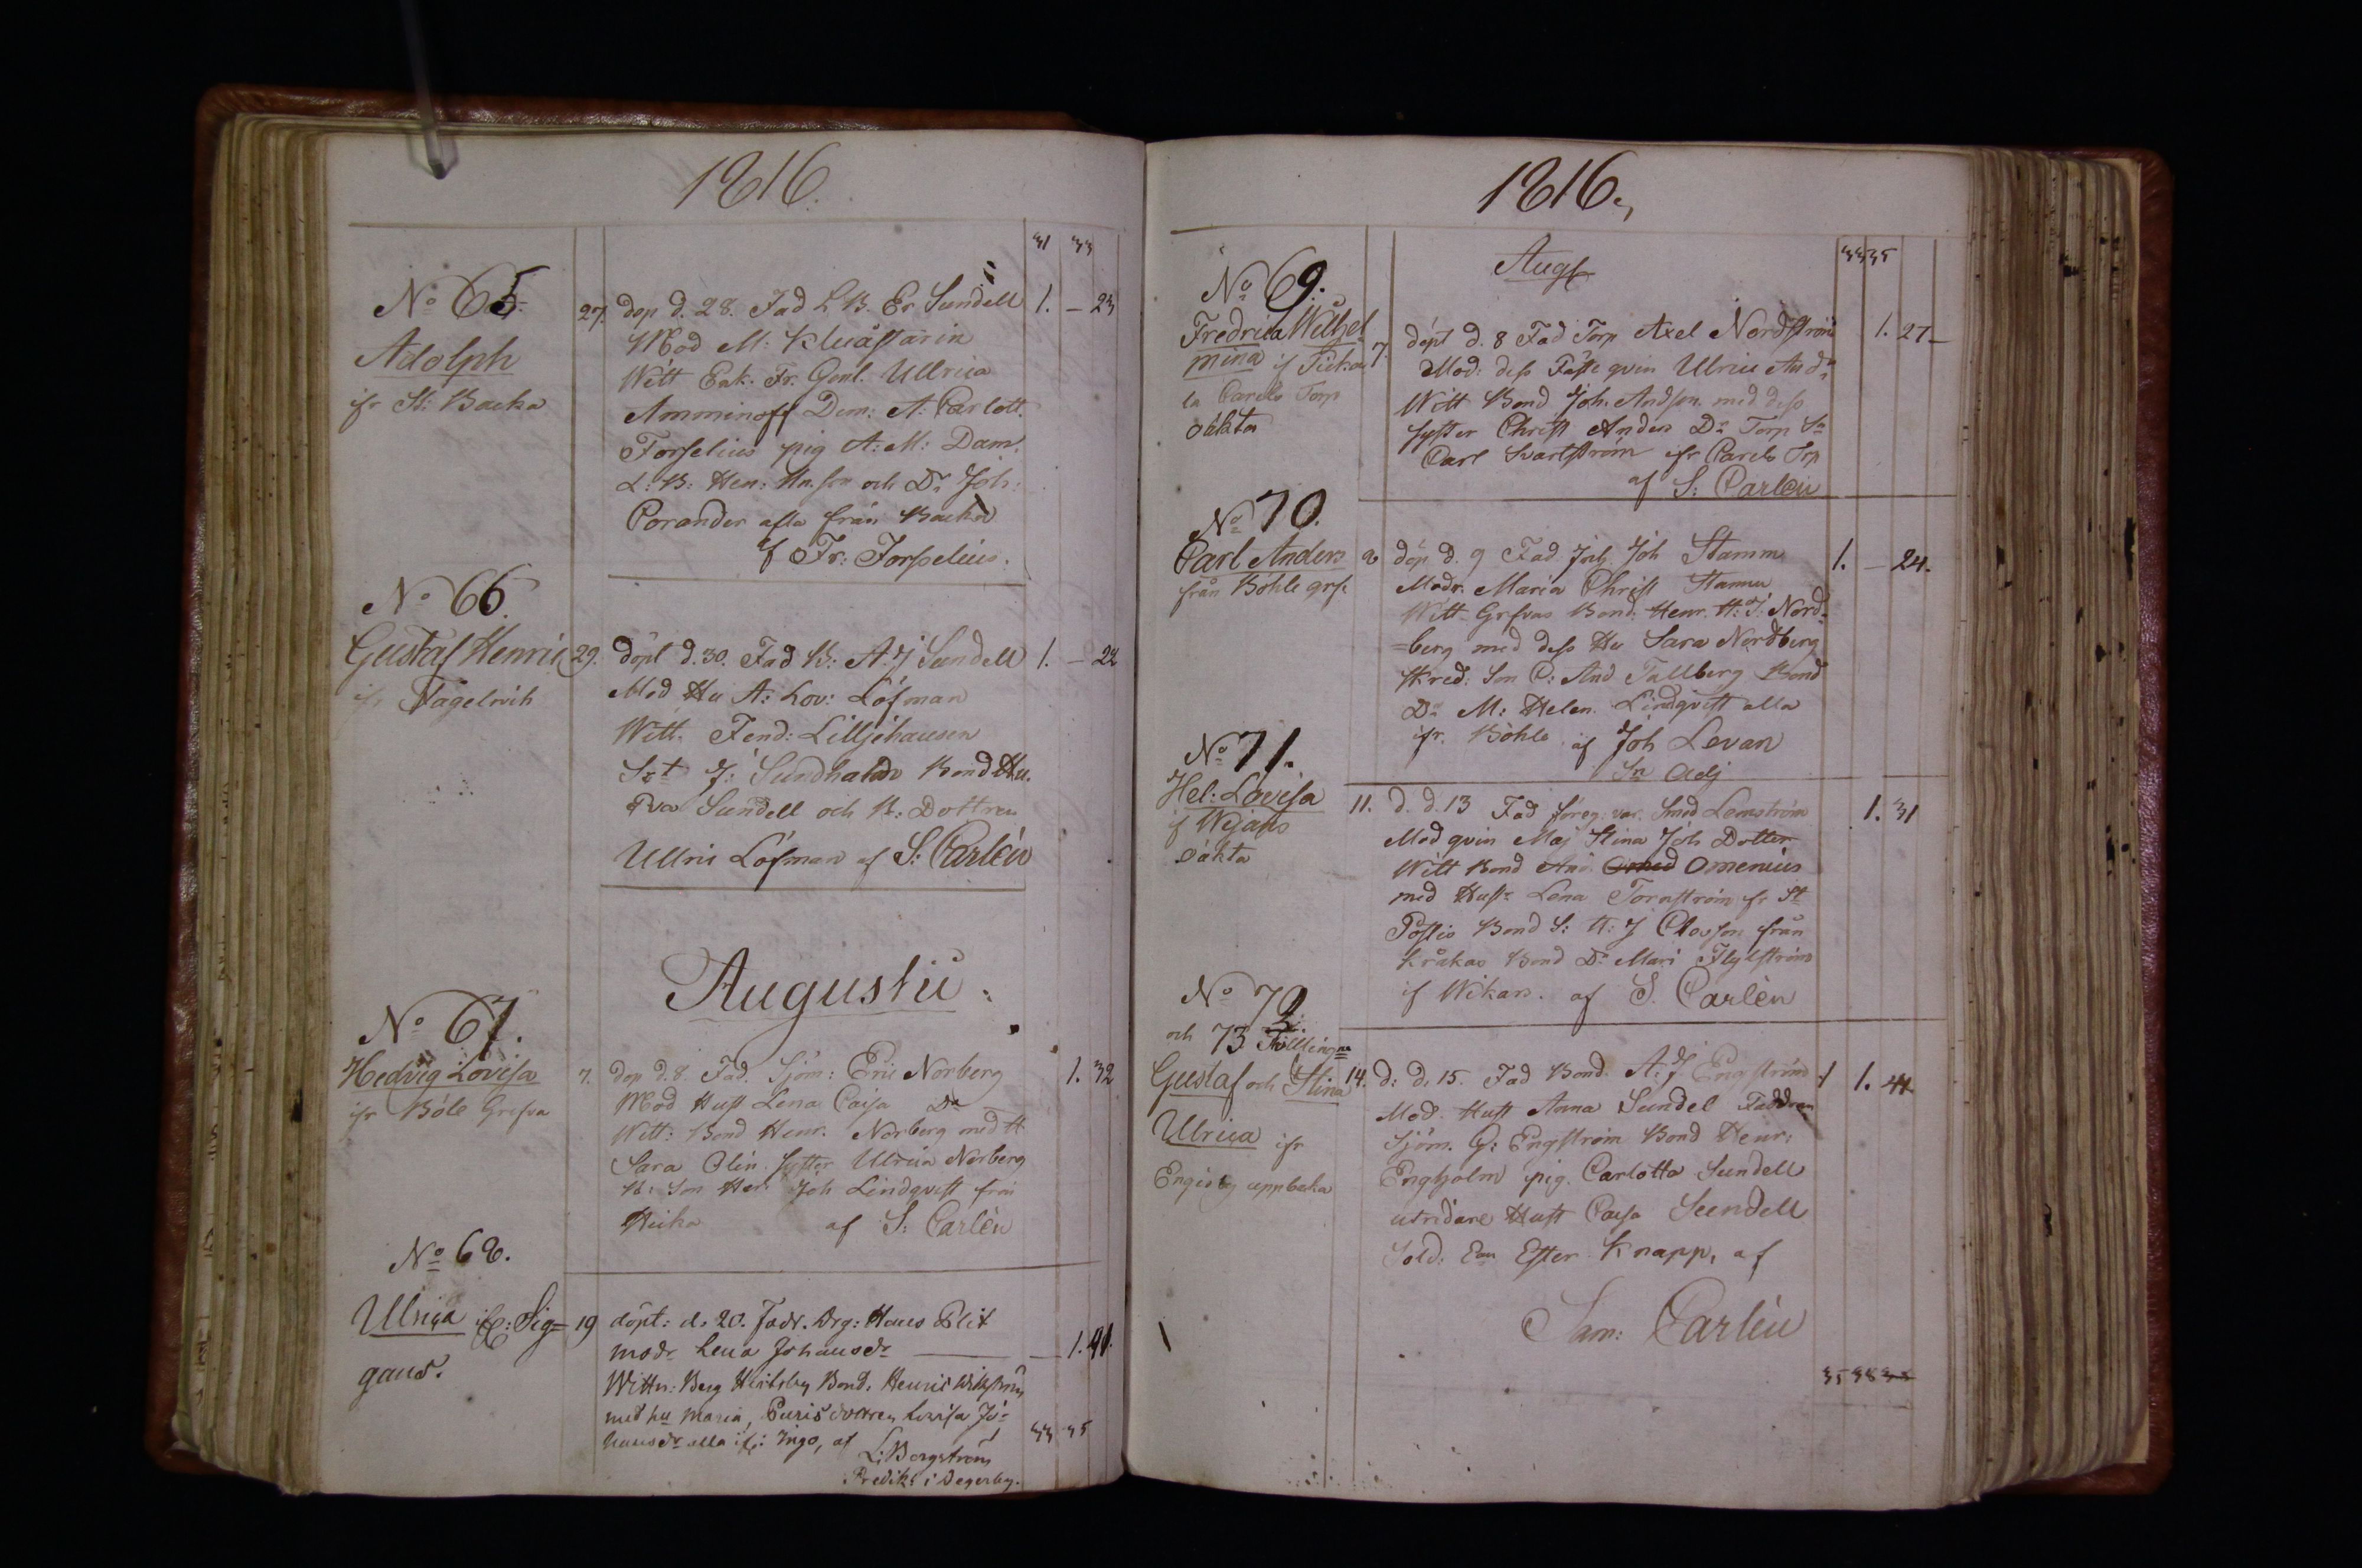 1816.
31 33
No 65.
Adolph
ifr St: Backa
27. dop d. 28. Fad L B. Er Sundell 1. – 23
Mod M: Kluåstarin
Witt Enk. Fr. Genl. Ullrica
Amminoff Dem: A: Carlott.
Forselius pig A: M: Dam.
L: B: Hen: Hn.son och Dr Joh:
Corander alla från Backa
af Fr: Forselius.
No 66.
Gustaf Henric
ifr Fagelvik
29. döpt d. 30. Fad B: A: J Sundell 1. – 22
Mod Hu A: Lov: Löfman
Witt. Fend: Lilljehausen
J: Bond Hu.
Eva Sundell och B: Dottren
Ullric Löfman af S: Carlén
Augustii.
No 67.
Hedvig Lovisa
ifr Böle Grefva
7. dop d. 8. Fad. Sjöm: Eric Norberg 1. 32
Mod Hust Lena Caisa Dr
Witt: Bond Henr. Norberg med H.
Sara Olin. Syster Ulrica Norberg
B: Son Hen Joh Lindqvist från
af S: Carlén
No 68.
Ulrica ifr: Sig=
gans.
19 döpt: d. 20. Fadr. Drg: Hans Blit
modr Lena Johansdr 1. 41.
Wittn: Berg Bond. Henric Wikström
med hu Maria, dottren Lovisa Jo-
hansdr alla ifr: Ingo, af L: Bergström
Predik: i Degerby.
33 35
1816.
33 35
Augs
No 69.
Fredrica Wilhel
mina if
la Carels Torp
oäkta
7. döpt d. 8 Fad Torp Axel Nordström 1. 27 –
Mod: dess Fäste qvin Ulric Andr
Witt Bond Joh. Andson. med dess
syster Christ Anders Dr Torp Sn
Carl Svartström ifr Carels Trp
af S: Carlén
No 70.
Carl Anders
från Böhle grf.
8 döp d. 9 Fad Joh Stamm 1. – 24.
Modr. Maria Christ Stamm
Witt Grefvas Bond: Henr. H: S. Nord-
=berg med dess Hu Sara Nordberg
Skred: Son C: And Tallberg Bond
Dr M: Helen. Lindqvist alla
ifr. Böhle af Joh Levan
Sn Adj
No 71.
Hel: Lovisa
if Wejans
oäkta
11. d. d. 13 Fad föreg. var. Smed Lemström 1. 31
Mod qvin Maj Stina Joh Dotter
Witt Bond And Omenius
med Hustr Lena Tornström fr St
Postis Bond S: H: J Clavson från
Kråkas Bond Dr Mari
if Wikars. af S. Carlén
No 72.
och 73 Tvillingar
Gustaf och Stina
Ulrica ifr
Engisby uppbacka
14. d: d. 15. Fad Bond. A: J. Engström 1. 41
Mod. Hust Anna Sundel Faddran
Sjöm. G: Engström Bond Henr:
Engholm pig. Carlotta Sundell
utridare Hust Caisa Sundell
Sold: Enn Ester Knapp, af
Sam: Carlén
35 38